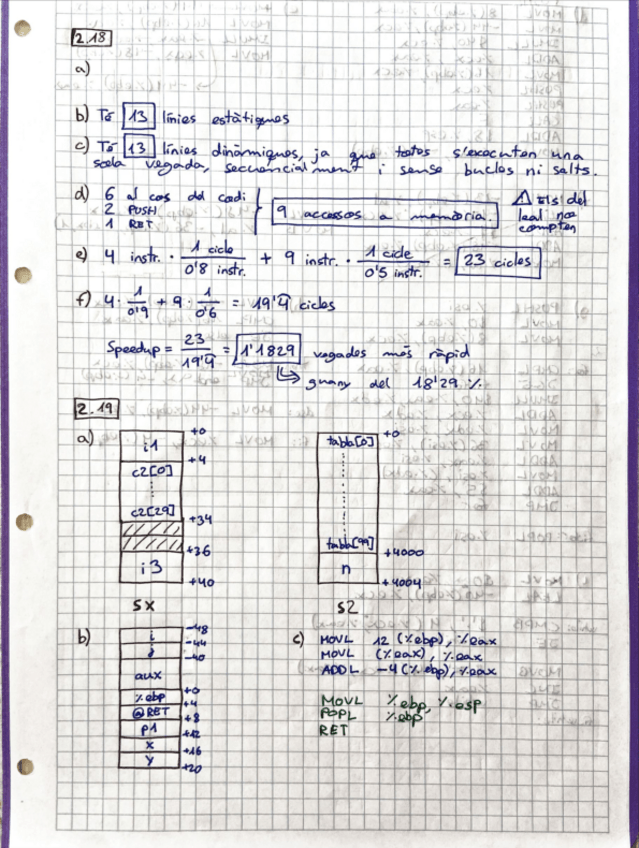 2.18
a)
b) Té 13 línies estàtiques
c) Té 13 línies dinàmiques, ja que totes s'executen una
sola vegada, seqüencialment i sense bucles ni salts.
d) 6 al cos del codi
2 PUSH
1 RET
9 accessos a memòria.
⚠ Els del
leal no
compten
e) 4 instr. · 1 cicle / 0'8 instr. + 9 instr. · 1 cicle / 0'5 instr. = 23 cicles
f) 4 · 1/0'9 + 9 · 1/0'6 = 19'4 cicles
Speedup = 23/19'4 = 1'1829 vegades més ràpid
↳ guany del 18'29 %
2.19
a)
i1
c2[0]
c2[29]
i3
+0
+4
+34
+36
+40
SX
tabla[0]
tabla[99]
n
+0
+4000
+4004
S2
b)
i
j
aux
%ebp
@RET
p1
x
y
-48
-44
-40
+0
+4
+8
+12
+16
+20
c) MOVL 12(%ebp), %eax
MOVL (%eax), %eax
ADDL -4(%ebp), %eax
MOVL %ebp, %esp
POPL %ebp
RET